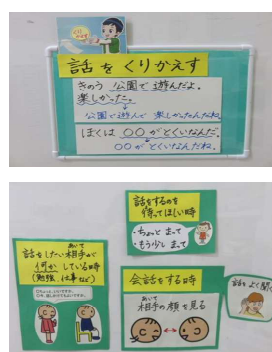 くりかえす
話をくりかえす
きのう 公園で遊んだよ。
楽しかった。
公園で遊んで 楽しかったんだね。
ぼくは 〇〇がとくいなんだ。
〇〇がとくいなんだね。
話をするのを
待ってほしい時
・ちょっと まって
・もう少し まって
あいて
話をしたい相手が
何かしている時
(勉強、仕事など)
会話をする時
あいて
相手の顔を見る
話をよく聞く